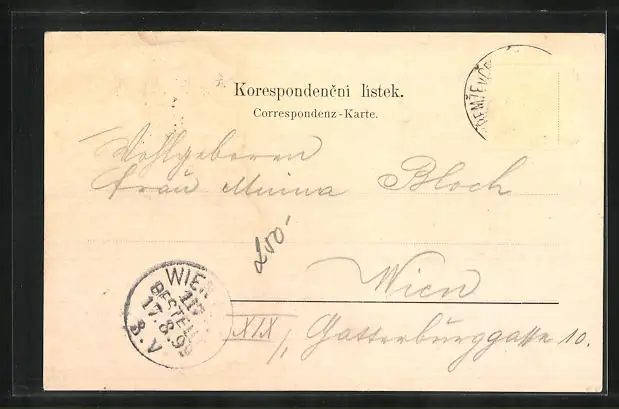 Korespondenční lístek.
Correspondenz-Karte.
Wohlgeboren
Frau Minna Bloch
200·
Wien
XIX/1, Gatterburggasse 10.
WIEN
BESTELLT
17.8.99
8.V